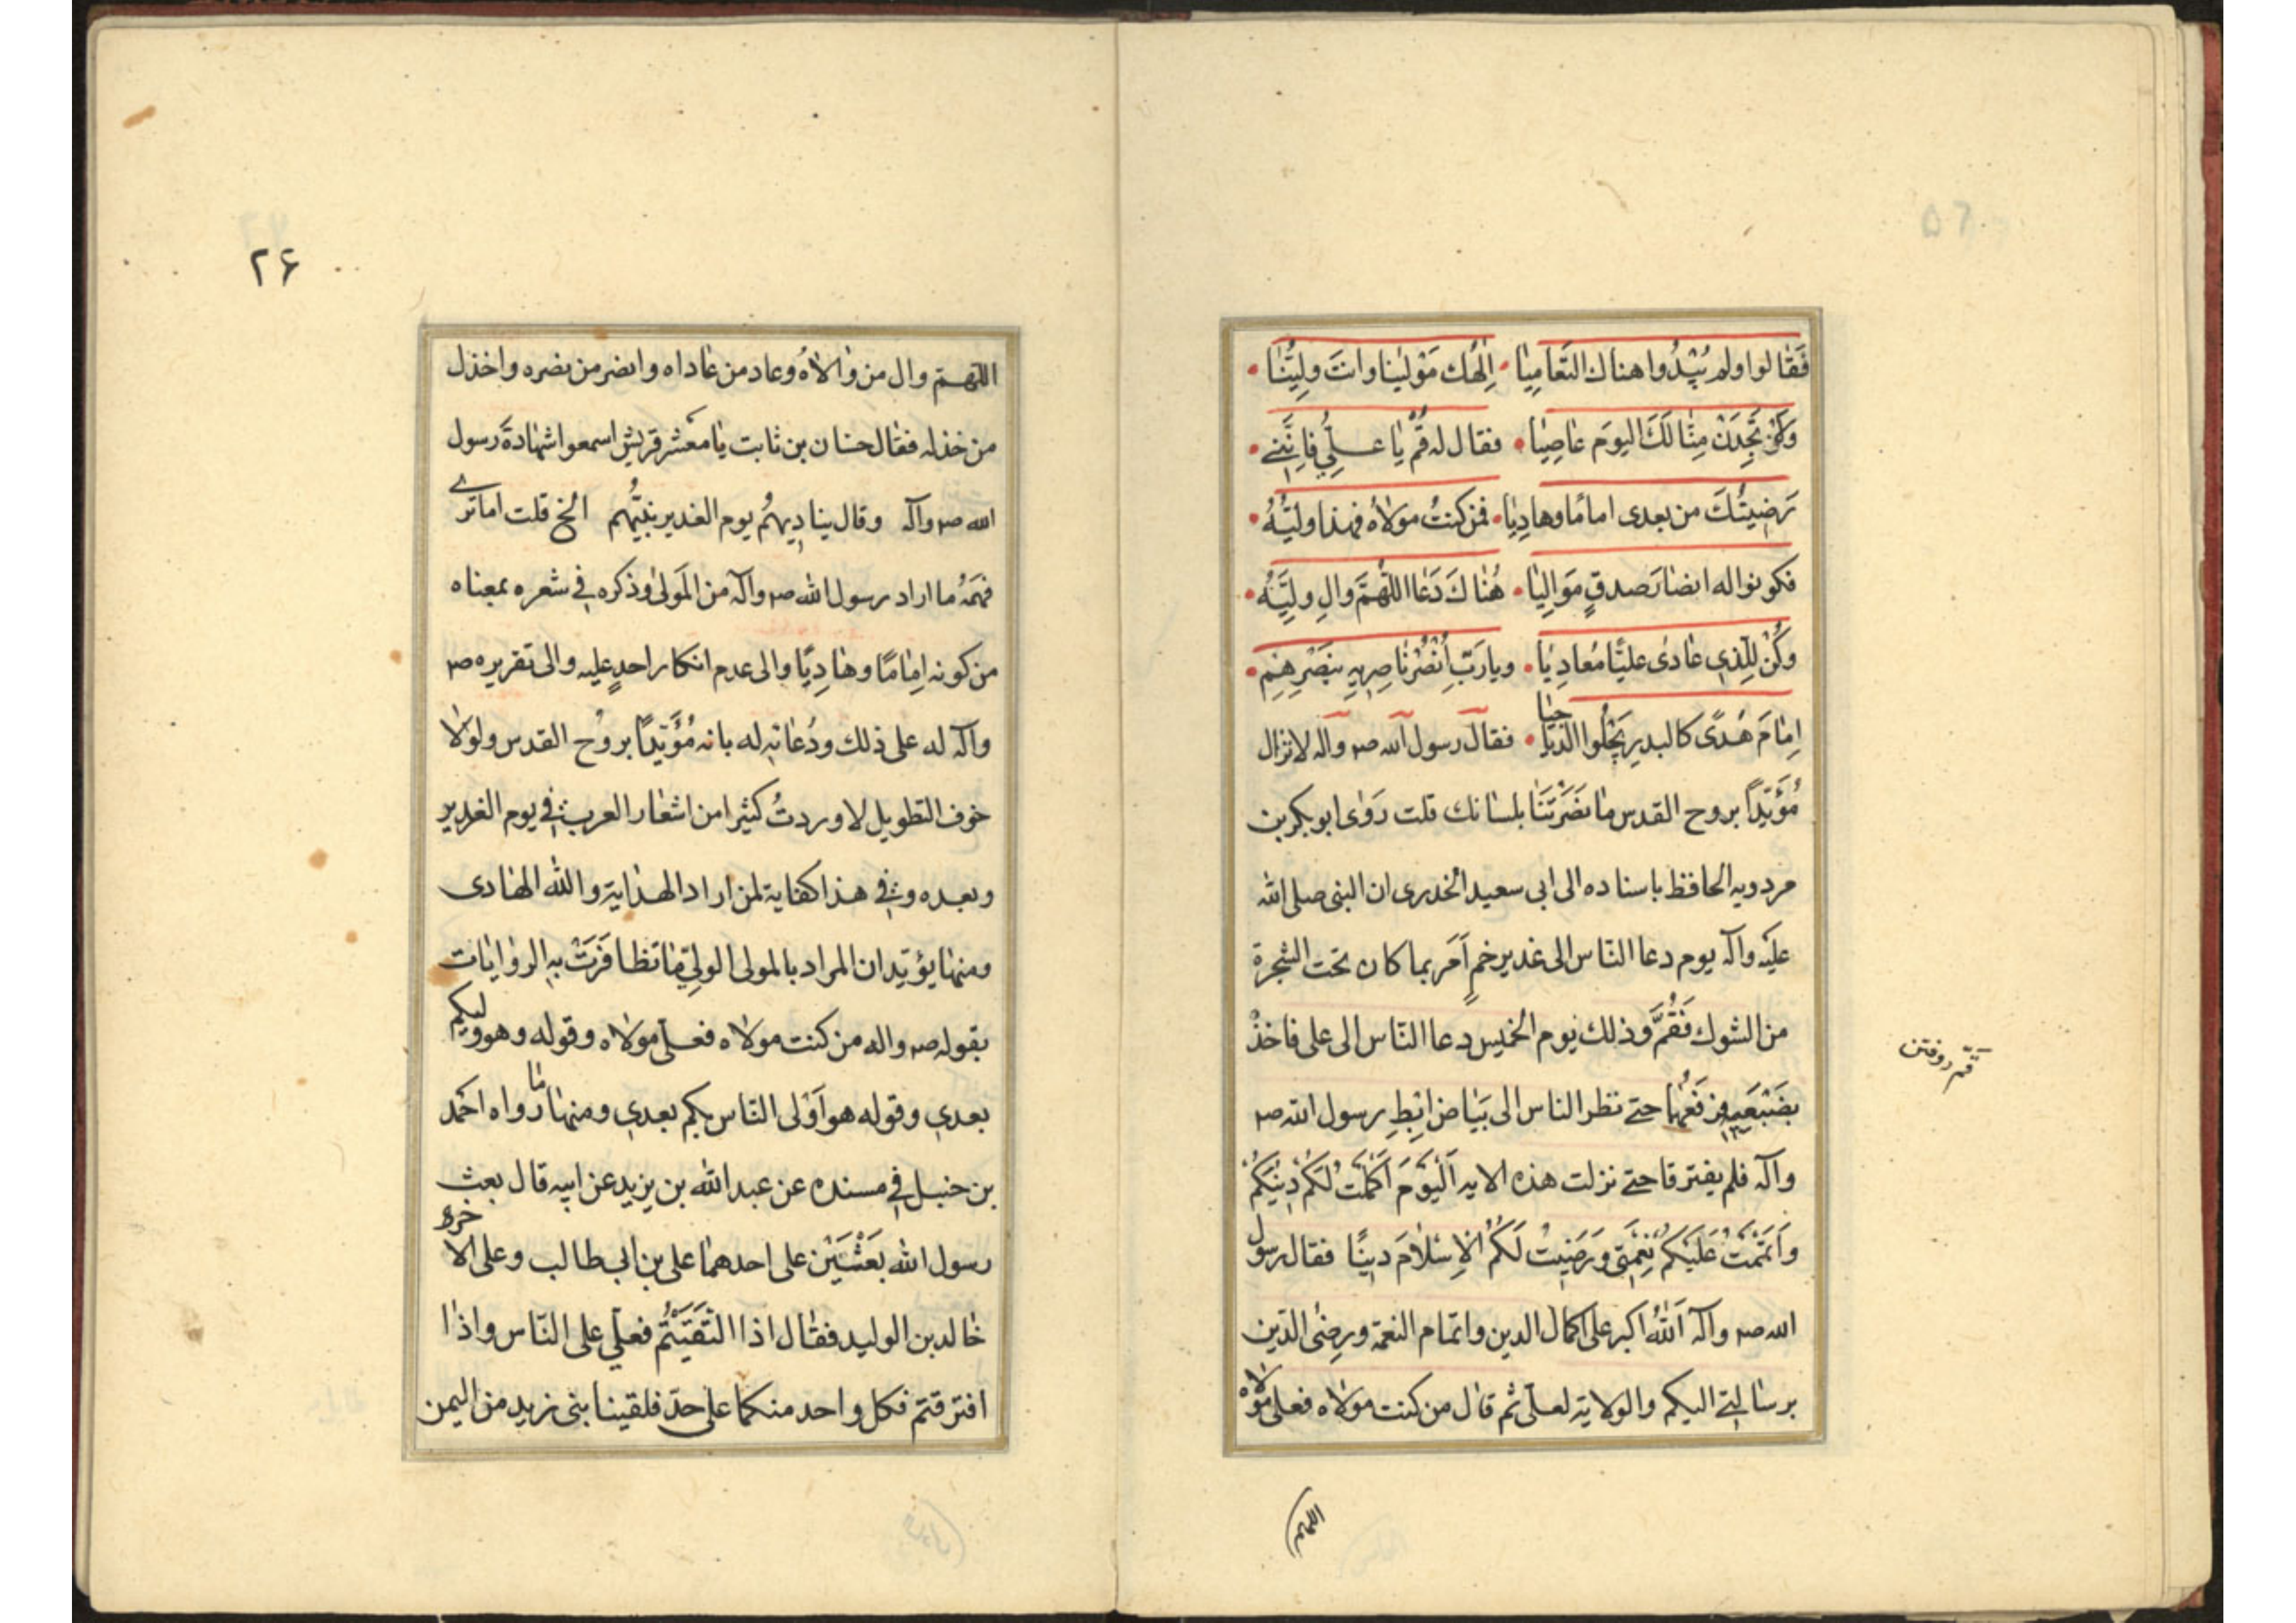 فَقٰالوا ولم يُبْدُوا هناك التَّعٰامِيٰا • اِلٰهُك مَوْلينٰا وانتَ ولِيُّنٰا •
وَلَنْ تَجِدَنْ مِنّٰا لَكَ اليومَ عٰاصِيٰا • فقال له قُمْ يٰا عليُّ فاِنَّنے •
رَضِيتُكَ من بعدى امامًا وهادِيٰا • فمن كنتُ مولاهُ فهذا وليُّهُ •
فكونوا له انصٰارَ صدقٍ مَوٰالِيٰا • هُنٰاكَ دَعٰا اللّٰهُمَّ وٰالِ وليَّهُ •
وكُنْ لِلّذِي عٰادىٰ عليًّا مُعادِيٰا • ويا رَبِّ اُنْصُرْ نٰاصِرِيهِ بنَصْرِهِم •
اِمٰامَ هُدًى كالبدرِ يَجْلُوا الدّيٰاجيٰا • فقال رسول الله صم واله لا تزال
مُؤَيّدًا بروح القدس مٰا نَصَرْتَنٰا بلسٰانك قلت رَوٰى ابو بكر بن
مردويه الحافظ باسناده الى ابى سعيد الخدرى ان النبى صلى الله
عليه وآله يوم دعا النّاس الى غدير خمٍ اَمَر بما كان تحت الشجرة
من الشوك فَقُمَّ وذلك يوم الخميس دعا النّاس الى على فاخذَ
بضَبْعَيهِ فرَفَعَهُا حتے نظر الناس الى بَيٰاض اِبْطِ رسول الله صم
وآله فلم يفترقا حتے نزلت هذه الايه اَلْيَوْمَ اَكْمَلْتُ لَكُمْ دِيْنَكُمْ
وَاَتْمَمْتُ عَلَيْكُمْ نِعْمَتِى وَرَضِيْتُ لَكُمُ الْاِسْلٰامَ دِينًا فقال رسول
الله صم وآله اَللّٰهُ اكبر على اكمال الدين واتمام النعمة ورِضىٰ الدّين
برسٰالتے اليكم والولاية لعلىّ ثم قال من كنت مولاه فعلى مولاه
قَمّ روفتن
اللهم
۲۶
اللّٰهم وال من وٰالاهُ وعاد من عٰاداه وانصر من نصره واخذل
من خذله فقٰال حسّان بن ثابت يٰا معشر قريش اسمعوا شهٰادةَ رسول
الله صم وآله وقال يناديهُم يوم الغدير نبيُّهُم الخ قلت اما ترے
فهمَهُ ما اراد رسول الله صم وآله من المَولىٰ وذكره في شعره بمعناه
من كونه اِمٰامًا وهٰادِيًا والى عدم انكار احدٍ عليه والى تقريره صم
وآله له على ذلك ودُعٰائه له بانه مُؤَيّدًا بروح القدس ولولا
خوف التطويل لاوردتُ كثيرا من اشعٰار العرب في يوم الغدير
وبعده وفي هذا كفٰاية لمن اراد الهدٰاية والله الهٰادى
ومنهٰا يؤيّد ان المراد بالمولى الوليّ مٰا تظٰافَرَتْ به الروٰايٰات
بقوله صم واله من كنت مولاه فعلىّ مولاه وقوله وهو وليكم
بعدي وقوله هو اَوْلى النّاس بكم بعدي ومنهٰا مٰا رواه احمد
بن حنبل في مسنده عن عبد الله بن يزيد عن ابيه قال بعث
رسول الله بَعْثَيْن على احدهمٰا على بن ابي طالب وعلى الاخرى
خٰالد بن الوليد فقٰال اذا التَقَيْتُم فعلي على النّاس واذٰا
افترقتم فكل واحد منكما على حدّ فلقينا بنى زيد من اليمن